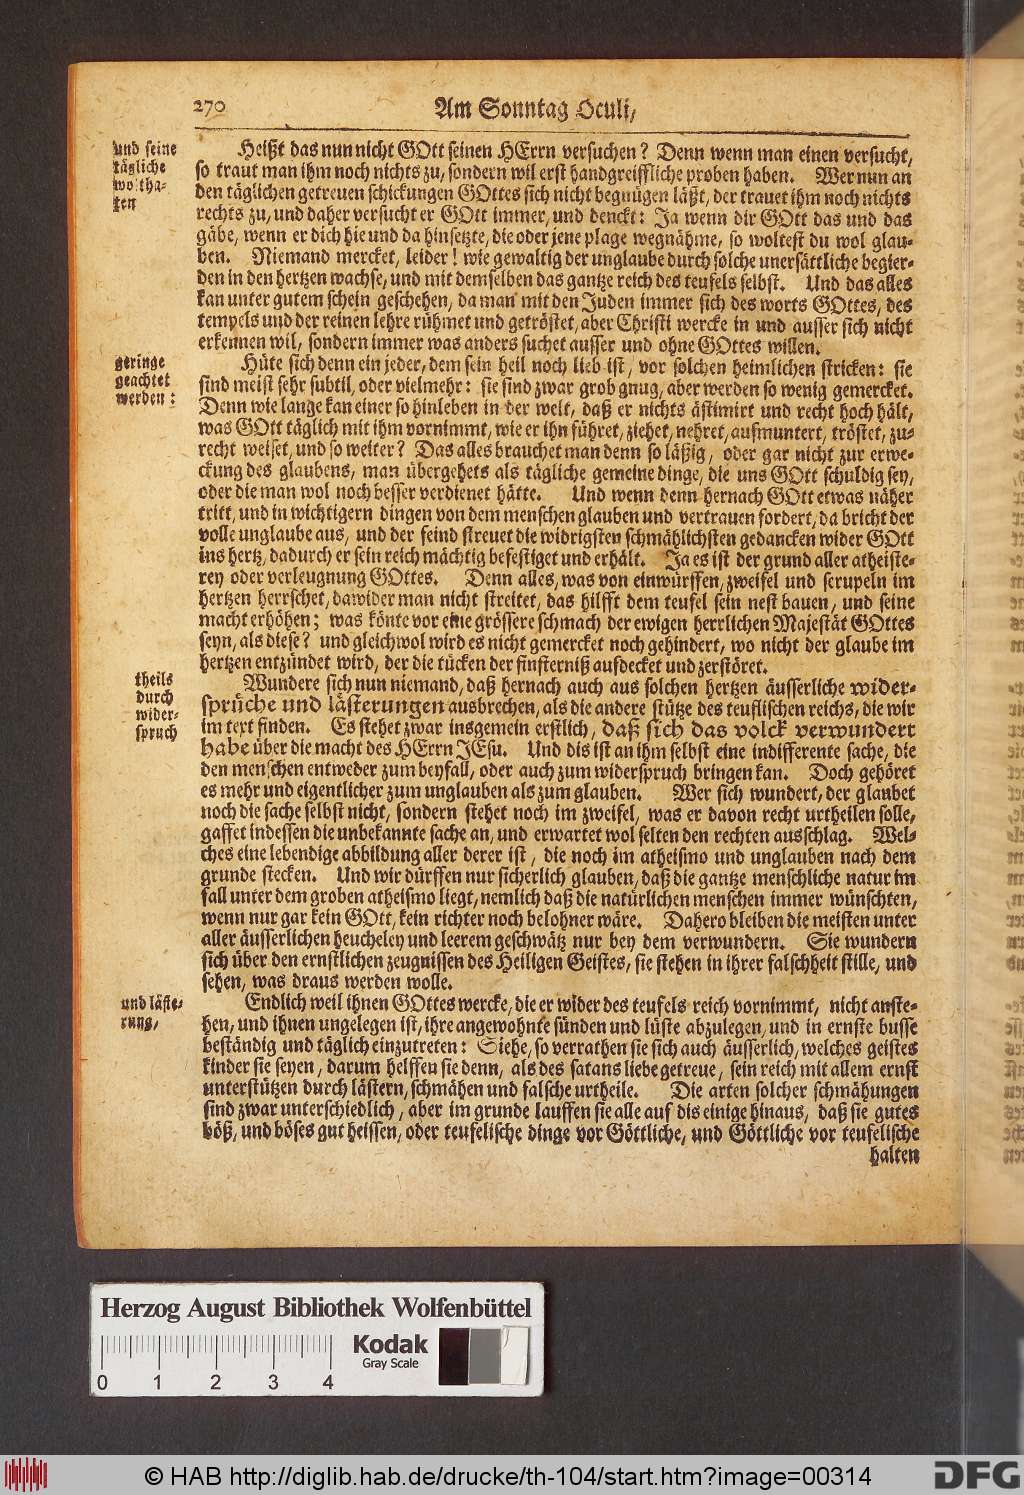 270
Am Sonntag Oculi,
und seine
tägliche
woltha-
ten
Heißt das nun nicht GOtt seinen HErrn versuchen? Denn wenn man einen versucht,
so traut man ihm noch nichts zu, sondern wil erst handgreiffliche proben haben. Wer nun an
den täglichen getreuen schickungen GOttes sich nicht begnügen läßt, der trauet ihm noch nichts
rechts zu, und daher versucht er GOtt immer, und denckt: Ja wenn dir GOtt das und das
gäbe, wenn er dich hie und da hinsetzte, die oder jene plage wegnähme, so woltest du wol glau-
ben. Niemand mercket, leider! wie gewaltig der unglaube durch solche unersättliche begier-
den in den hertzen wachse, und mit demselben das gantze reich des teufels selbst. Und das alles
kan unter gutem schein geschehen, da man mit den Juden immer sich des worts GOttes, des
tempels und der reinen lehre rühmet und getröstet, aber Christi wercke in und ausser sich nicht
erkennen wil, sondern immer was anders suchet ausser und ohne GOttes willen.
geringe
geachtet
werden:
Hüte sich denn ein jeder, dem sein heil noch lieb ist, vor solchen heimlichen stricken: sie
sind meist sehr subtil, oder vielmehr: sie sind zwar grob gnug, aber werden so wenig gemercket.
Denn wie lange kan einer so hinleben in der welt, daß er nichts ästimirt und recht hoch hält,
was GOtt täglich mit ihm vornimmt, wie er ihn führet, ziehet, nehret, aufmuntert, tröstet, zu-
recht weiset, und so weiter? Das alles brauchet man denn so läßig, oder gar nicht zur erwe-
ckung des glaubens, man übergehets als tägliche gemeine dinge, die uns GOtt schuldig sey,
oder die man wol noch besser verdienet hätte. Und wenn denn hernach GOtt etwas näher
tritt, und in wichtigern dingen von dem menschen glauben und vertrauen fordert, da bricht der
volle unglaube aus, und der feind streuet die widrigsten schmählichsten gedancken wider GOtt
ins hertz, dadurch er sein reich mächtig befestiget und erhält. Ja es ist der grund aller atheiste-
rey oder verleugnung GOttes. Denn alles, was von einwürffen, zweifel und scrupeln im
hertzen herrschet, dawider man nicht streitet, das hilfft dem teufel sein nest bauen, und seine
macht erhöhen; was könte vor eine grössere schmach der ewigen herrlichen Majestät GOttes
seyn, als diese? und gleichwol wird es nicht gemercket noch gehindert, wo nicht der glaube im
hertzen entzündet wird, der die tücken der finsterniß aufdecket und zerstöret.
theils
durch
wider-
spruch
Wundere sich nun niemand, daß hernach auch aus solchen hertzen äusserliche wider-
sprüche und lästerungen ausbrechen, als die andere stütze des teuflischen reichs, die wir
im text finden. Es stehet zwar insgemein erstlich, daß sich das volck verwundert
habe über die macht des HErrn JEsu. Und dis ist an ihm selbst eine indifferente sache, die
den menschen entweder zum beyfall, oder auch zum widerspruch bringen kan. Doch gehöret
es mehr und eigentlicher zum unglauben als zum glauben. Wer sich wundert, der glaubet
noch die sache selbst nicht, sondern stehet noch im zweifel, was er davon recht urtheilen solle,
gaffet indessen die unbekannte sache an, und erwartet wol selten den rechten ausschlag. Wel-
ches eine lebendige abbildung aller derer ist, die noch im atheismo und unglauben nach dem
grunde stecken. Und wir dürffen nur sicherlich glauben, daß die gantze menschliche natur im
fall unter dem groben atheismo liegt, nemlich daß die natürlichen menschen immer wünschten,
wenn nur gar kein GOtt, kein richter noch belohner wäre. Dahero bleiben die meisten unter
aller äusserlichen heucheley und leerem geschwätz nur bey dem verwundern. Sie wundern
sich über den ernstlichen zeugnissen des Heiligen Geistes, sie stehen in ihrer falschheit stille, und
sehen, was draus werden wolle.
und läste-
rung,
Endlich weil ihnen GOttes wercke, die er wider des teufels reich vornimmt, nicht anste-
hen, und ihnen ungelegen ist, ihre angewohnte sünden und lüste abzulegen, und in ernste busse
beständig und täglich einzutreten: Siehe, so verrathen sie sich auch äusserlich, welches geistes
kinder sie seyen, darum helffen sie denn, als des satans liebe getreue, sein reich mit allem ernst
unterstützen durch lästern, schmähen und falsche urtheile. Die arten solcher schmähungen
sind zwar unterschiedlich, aber im grunde lauffen sie alle auf dis einige hinaus, daß sie gutes
böß, und böses gut heissen, oder teufelische dinge vor Göttliche, und Göttliche vor teufelische
halten
Herzog August Bibliothek Wolfenbüttel
Kodak
Gray Scale
0 1 2 3 4
© HAB http://diglib.hab.de/drucke/th-104/start.htm?image=00314
DFG